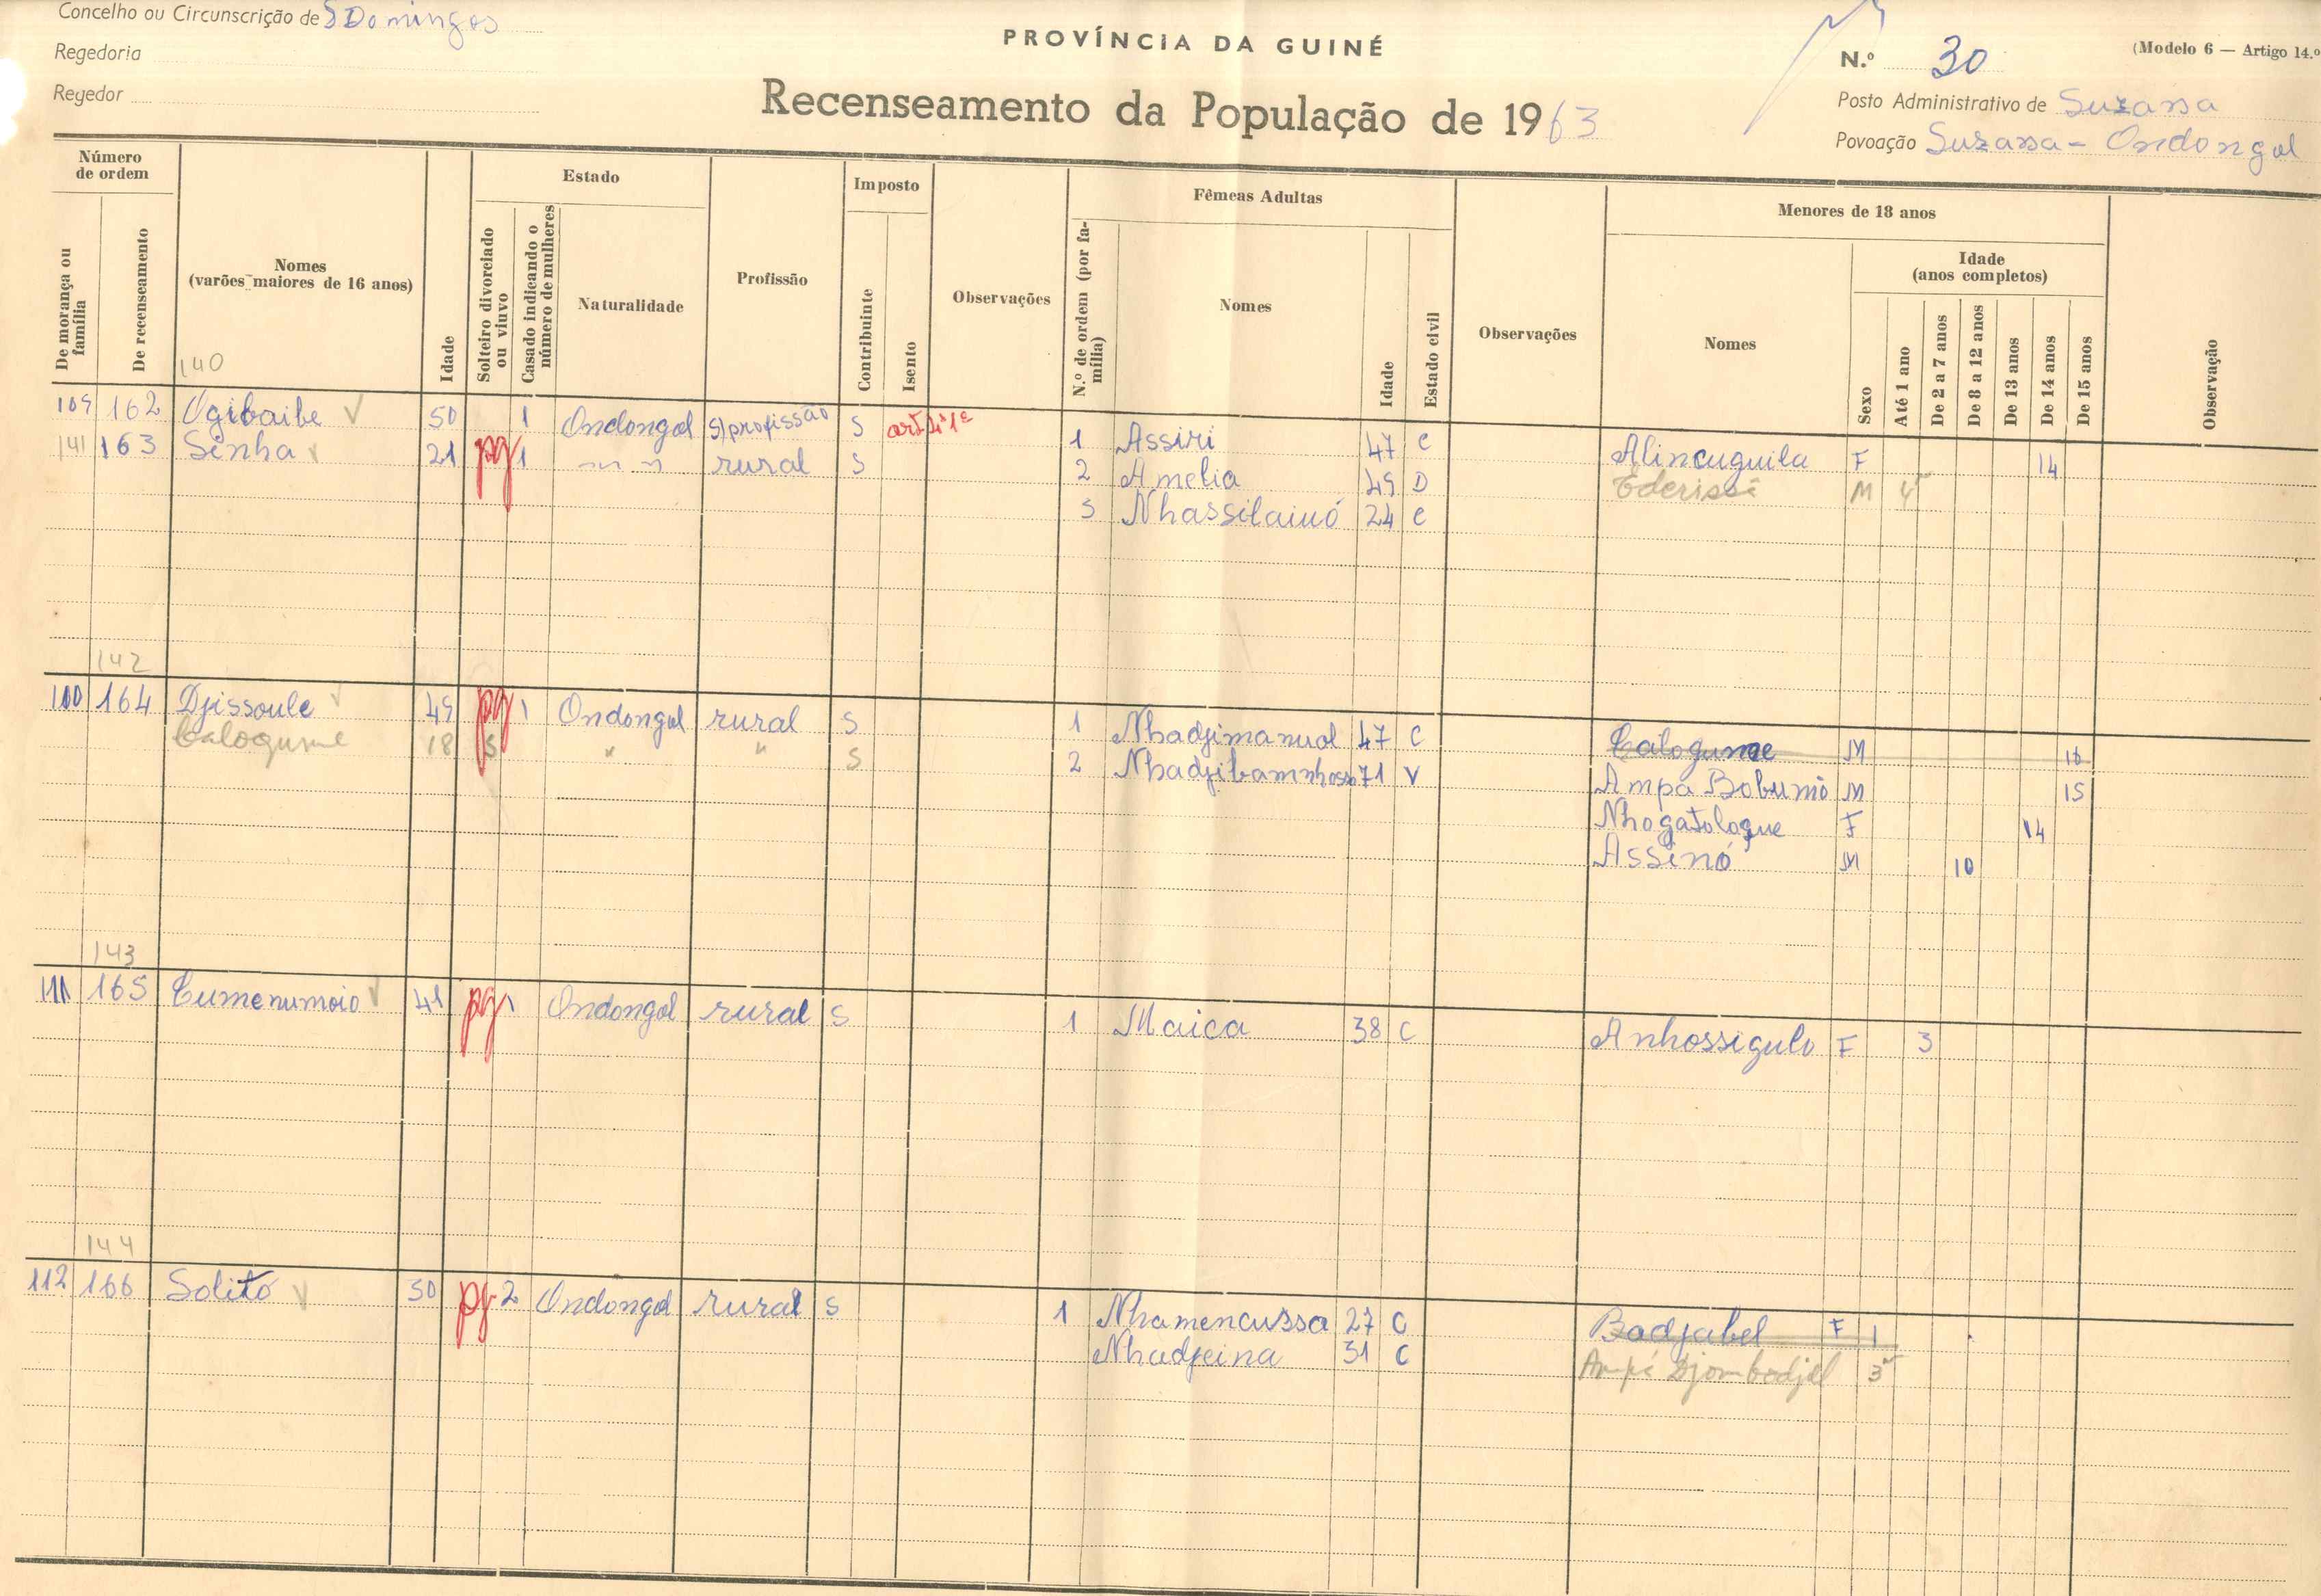 Concelho ou Circunscrição de S Domingos
Regedoria
Regedor
PROVÍNCIA DA GUINÉ
Recenseamento da População de 1963
(Modelo 6 — Artigo 14.º
N.º 30
Posto Administrativo de Suzana
Povoação Suzana - Ondongol
Número de ordem
De morança ou família
De recenseamento
Nomes
(varões maiores de 16 anos)
140
Idade
Estado
Solteiro divorciado ou viuvo
Casado indicando o número de mulheres
Naturalidade
Profissão
Imposto
Contribuinte
Isento
Observações
Fêmeas Adultas
N.º de ordem (por família)
Nomes
Idade
Estado civil
Observações
Menores de 18 anos
Nomes
Sexo
Idade
(anos completos)
Até 1 ano
De 2 a 7 anos
De 8 a 12 anos
De 13 anos
De 14 anos
De 15 anos
Observação
109 162 Ogibaibe 50 1 Ondongol S/profissão S 1 Assiri 47 C Alincuguila F 14
141 163 Sinha 21 pg 1 rural S 2 Amelia 49 D Ederissi M 4
3 Nhassilaiuó 24 C
142
110 164 Djissoule 49 pg 1 Ondongol rural S 1 Nhadjimanual 47 C Calogume M 16
Calogume 18 S " " S 2 Nhadjibaminhoss 71 V Ampa Bobunió M 15
Nhogatologue F 14
Assinó M 10
143
111 165 Cumenumoio 41 pg 1 Ondongol rural S 1 Maica 38 C Anhossigulo F 3
144
112 166 Solitó 50 pg 2 Ondongol rural S 1 Nhamencussa 27 C Badjabel F 1
Nhadjeina 31 C Ampá Djombodjel 3